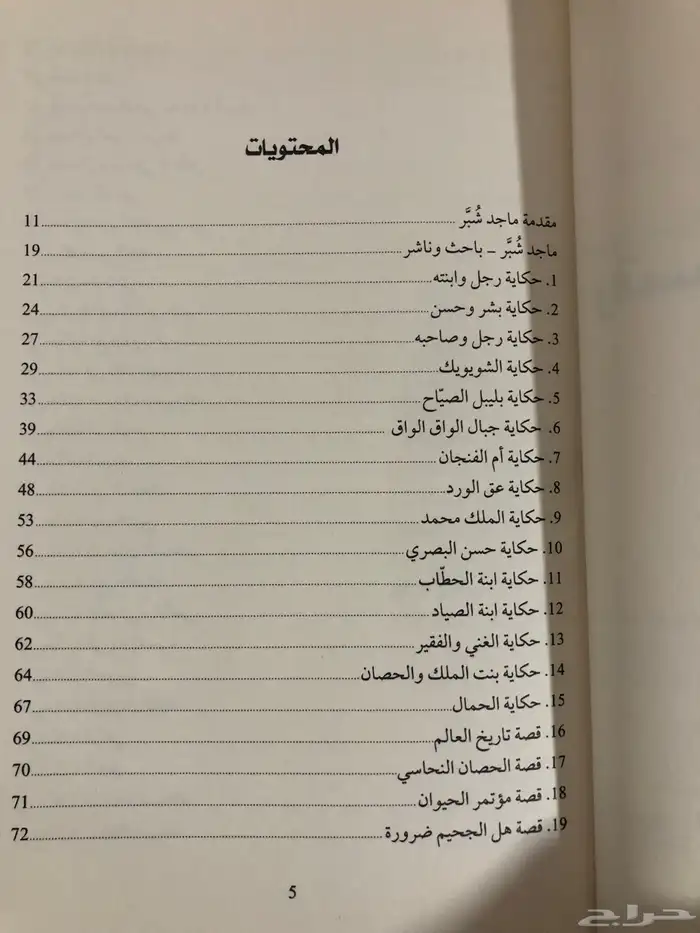 المحتويات
مقدمة ماجد شُبَّر ........ 11
ماجد شُبَّر – باحث وناشر ........ 19
1. حكاية رجل وابنته ........ 21
2. حكاية بشر وحسن ........ 24
3. حكاية رجل وصاحبه ........ 27
4. حكاية الشويويك ........ 29
5. حكاية بليبل الصيّاح ........ 33
6. حكاية جبال الواق الواق ........ 39
7. حكاية أم الفنجان ........ 44
8. حكاية عق الورد ........ 48
9. حكاية الملك محمد ........ 53
10. حكاية حسن البصري ........ 56
11. حكاية ابنة الحطّاب ........ 58
12. حكاية ابنة الصياد ........ 60
13. حكاية الغني والفقير ........ 62
14. حكاية بنت الملك والحصان ........ 64
15. حكاية الحمال ........ 67
16. قصة تاريخ العالم ........ 69
17. قصة الحصان النحاسي ........ 70
18. قصة مؤتمر الحيوان ........ 71
19. قصة هل الجحيم ضرورة ........ 72
5
حراج